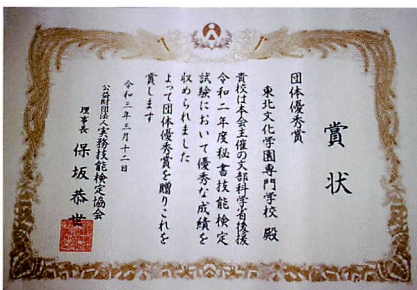 賞状
団体優秀賞
東北文化学園専門学校 殿
貴校は本会主催の文部科学省後援
令和二年度秘書技能検定
試験において優秀な成績を
収められました
よって団体優秀賞を贈りこれを
賞します
令和三年三月十二日
公益財団法人実務技能検定協会
理事長 保坂恭世